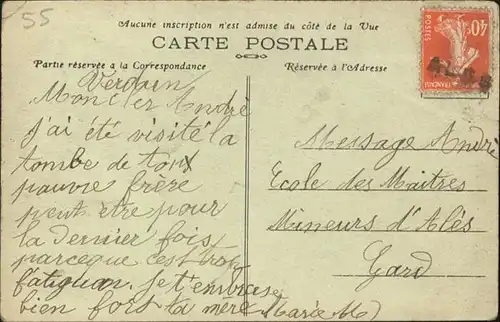 55
Aucune inscription n'est admise du côté de la Vue
CARTE POSTALE
Partie réservée a la Correspondance
Réservée à l'Adresse
Verdun
Mon cher André
j'ai été visité la
tombe de ton
pauvre frère
peut être pour
la dernier fois
parceque c'est trop
fatiguan. je t'embrasse
bien fort ta mère
Marie M
Message André
Ecole des Maitres
Mineurs d'Alès
Gard
40